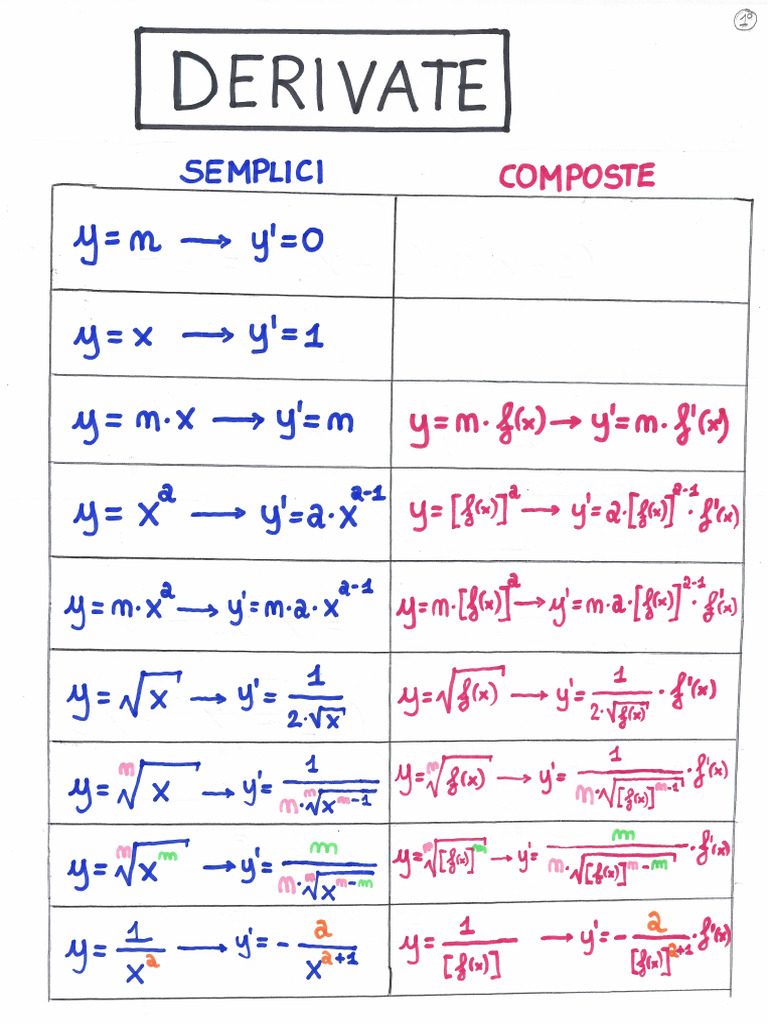 1º
DERIVATE
SEMPLICI COMPOSTE
y = m → y' = 0
y = x → y' = 1
y = m · x → y' = m
y = m · f(x) → y' = m · f'(x)
y = x^2 → y' = 2 · x^(2-1)
y = [f(x)]^2 → y' = 2 · [f(x)]^(2-1) · f'(x)
y = m · x^2 → y' = m · 2 · x^(2-1)
y = m · [f(x)]^2 → y' = m · 2 · [f(x)]^(2-1) · f'(x)
y = √x → y' = 1/(2 · √x)
y = √f(x) → y' = 1/(2 · √f(x)) · f'(x)
y = ᵐ√x → y' = 1/(m · ᵐ√(x^(m-1)))
y = ᵐ√f(x) → y' = 1/(m · √([f(x)]^(m-1))) · f'(x)
y = ᵐ√(x^m) → y' = m/(m · ᵐ√(x^(m-m)))
y = ᵐ√([f(x)]^m) → y' = m/(m · √([f(x)]^(m-m))) · f'(x)
y = 1/x^2 → y' = - 2/x^(2+1)
y = 1/[f(x)] → y' = - 2/[f(x)]^(2+1) · f'(x)